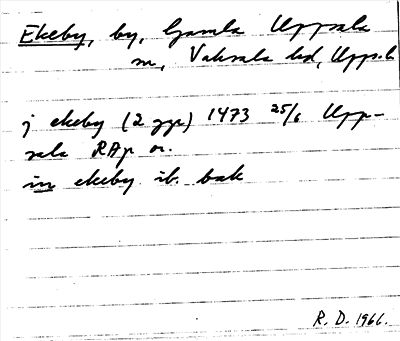 Ekeby, by, Gamla Uppsala
sn, Vaksala hd, Upps.l
j ekeby (2 ggr) 1473 25/6 Upp-
sala RAp or.
in ekeby ib. bak
R. D. 1966.